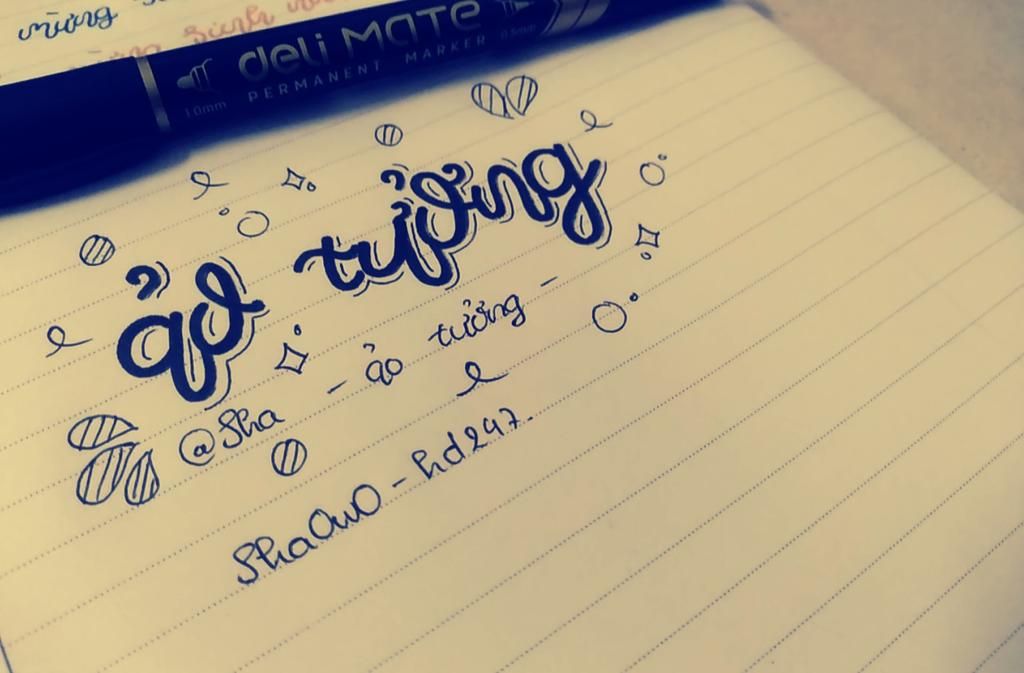 mừng
deli MATE
1.0mm PERMANENT MARKER 0.5mm
ảo tưởng
- ảo tưởng -
@Sha
ShaOwO - hd247.